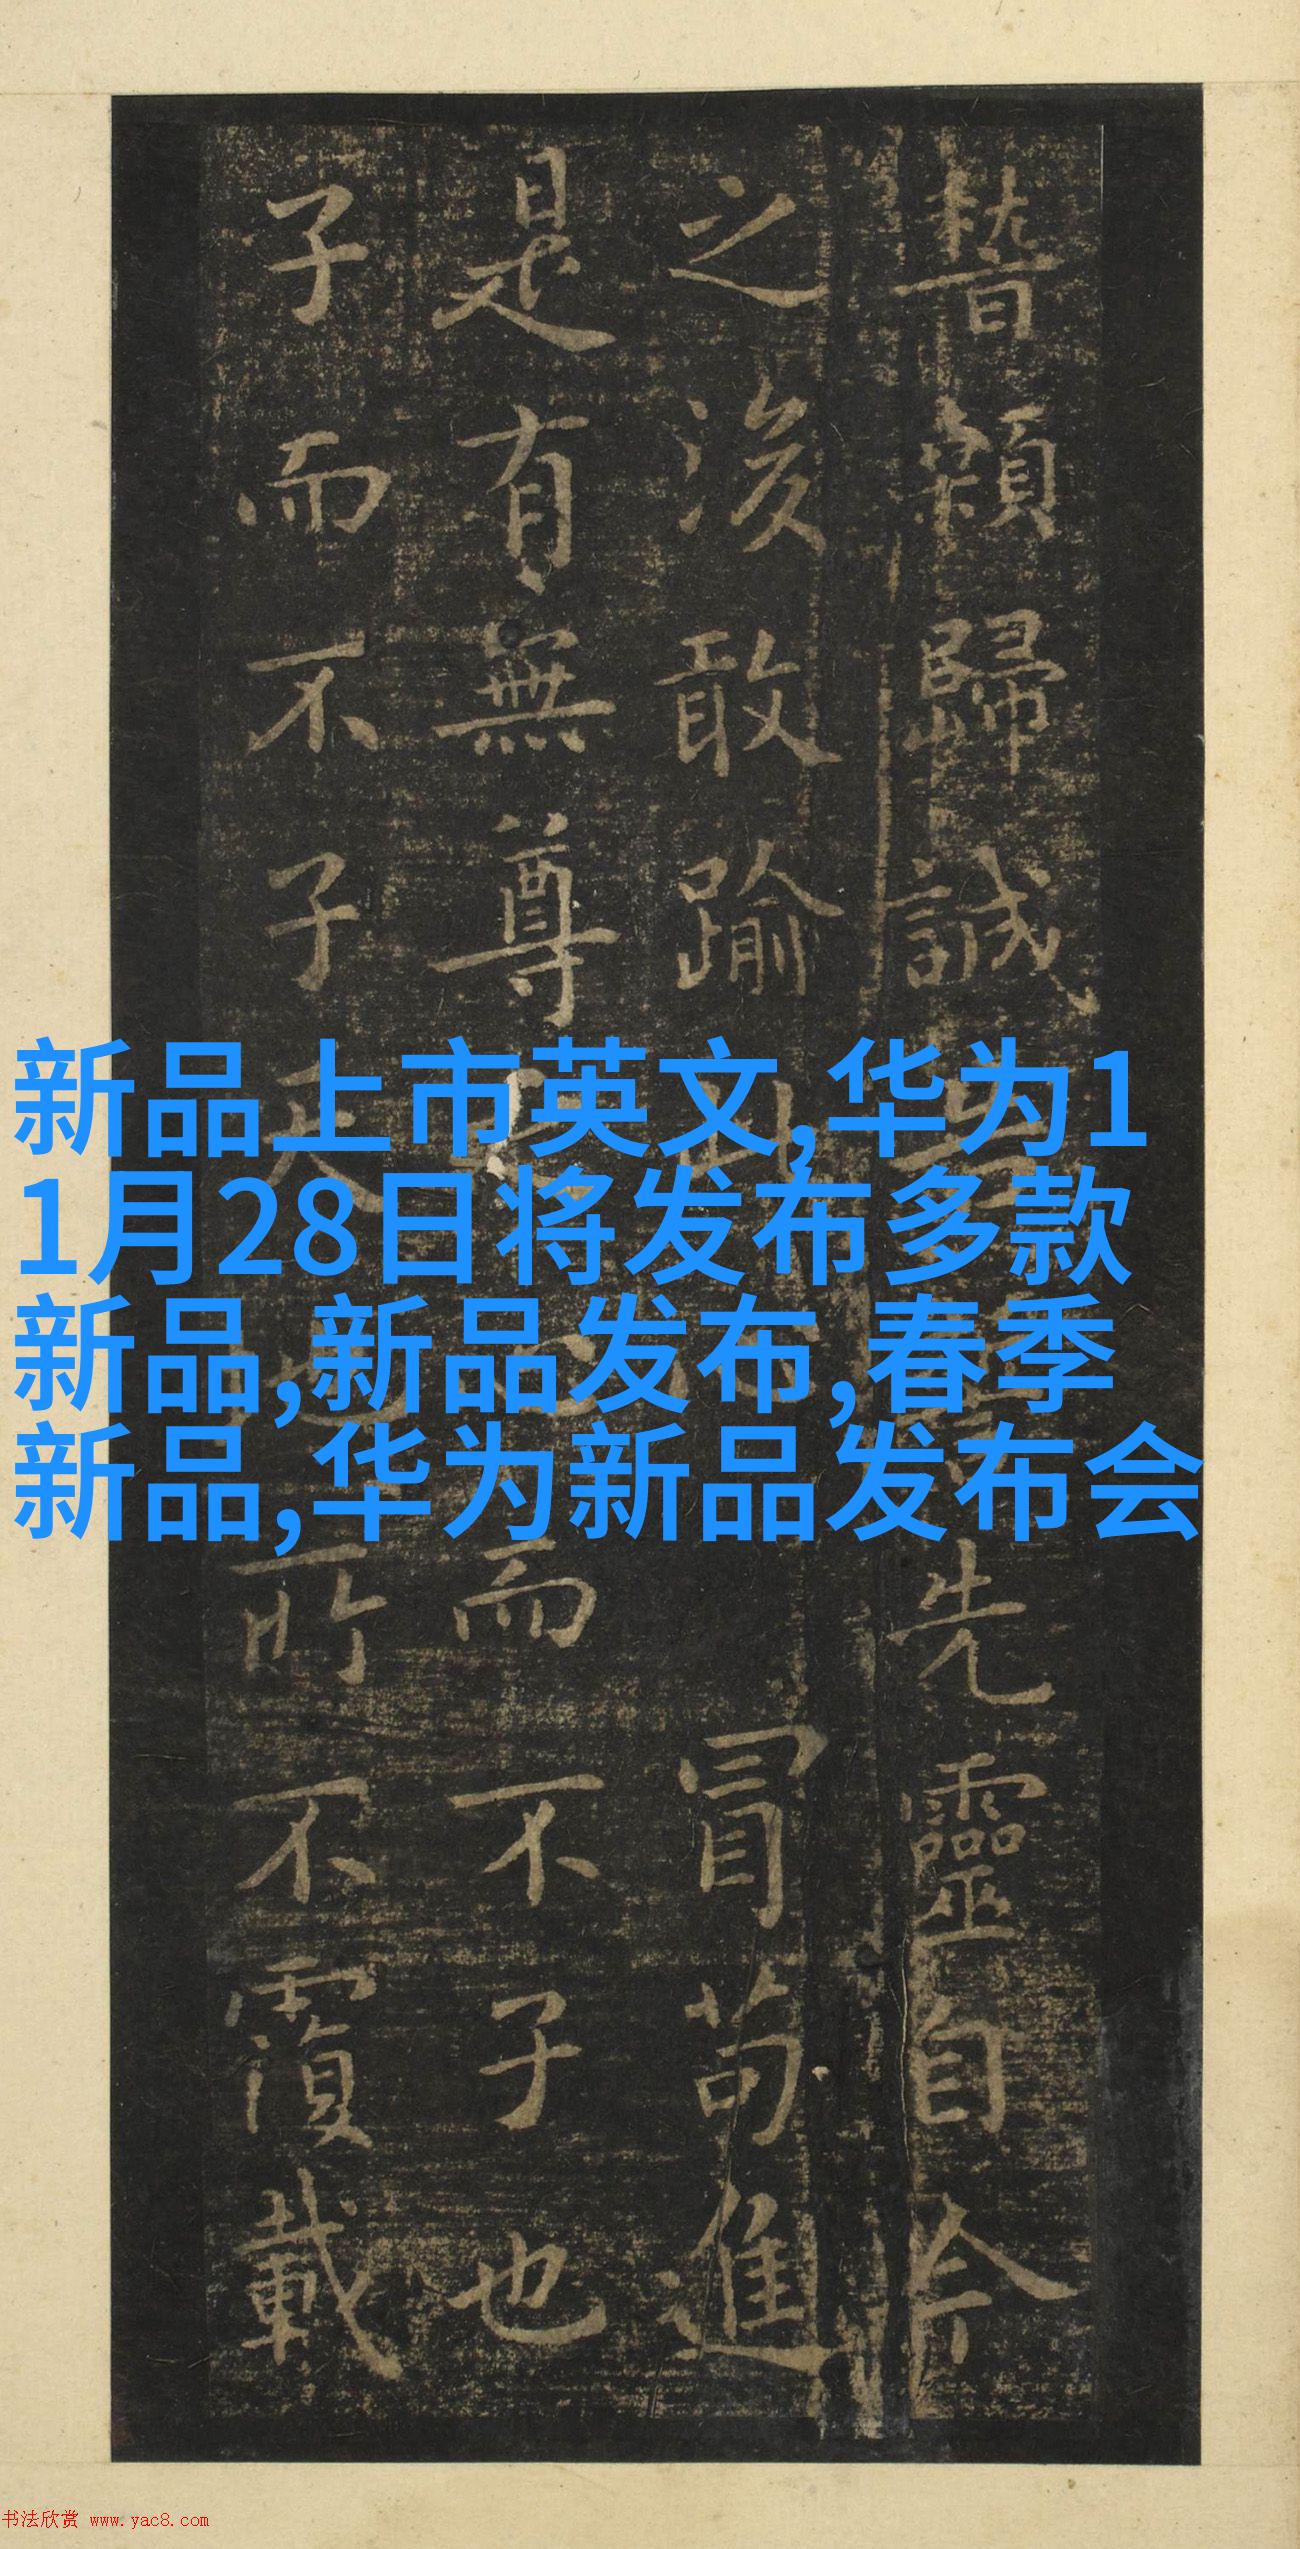 稽顙歸誠
先靈自今
之後敢踰
冒苟進
是有無尊
而不子也
子而不子天
所不覆載
新品上市英文,华为1
1月28日将发布多款
新品,新品发布,春季
新品,华为新品发布会
书法欣赏 www.yac8.com